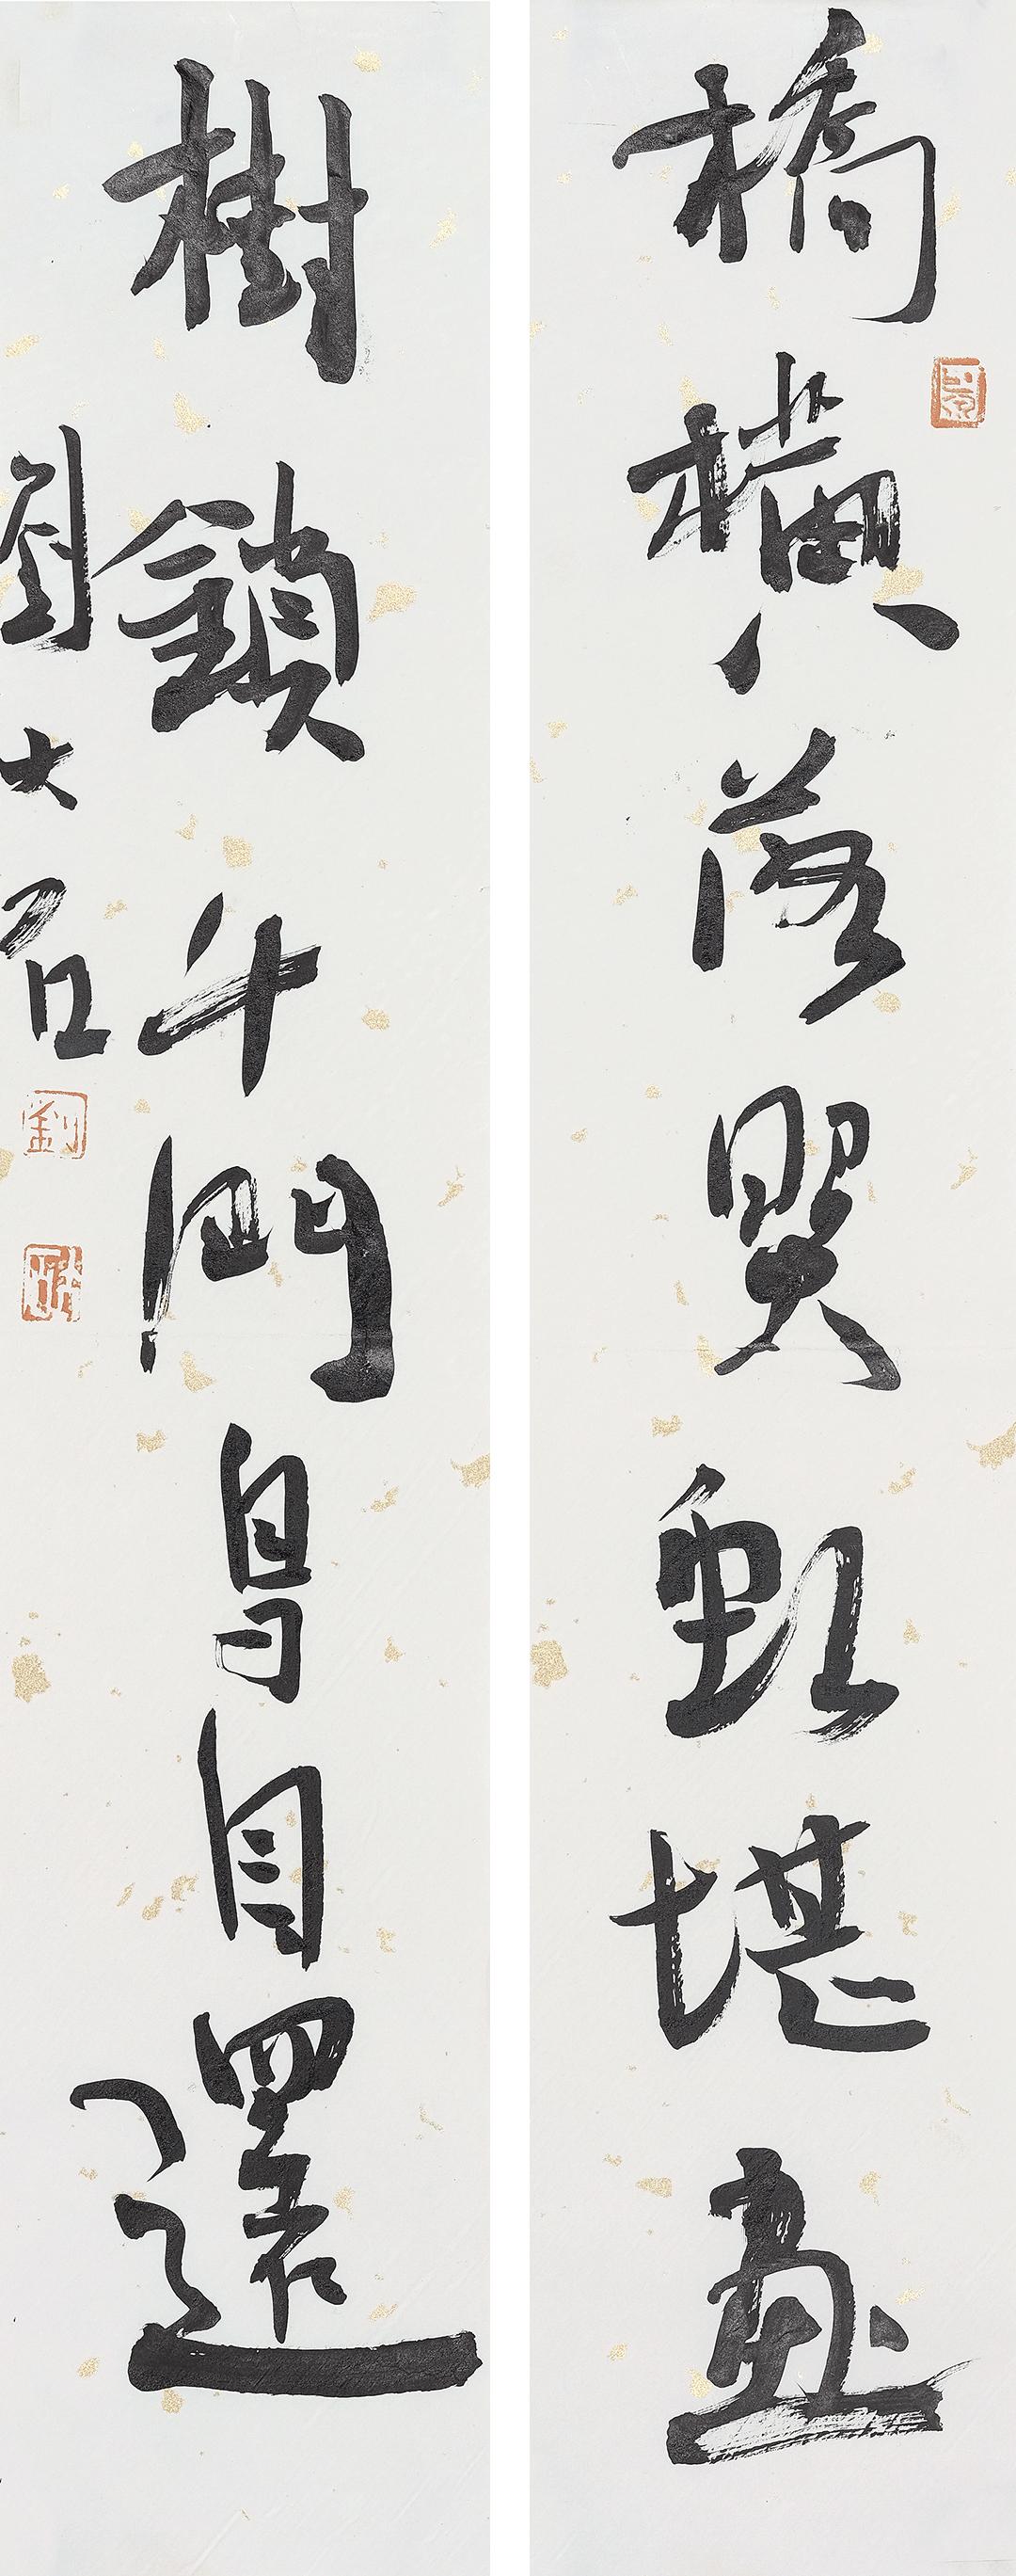 橋橫落照虹堪畫
樹鎖千門鳥自還
劉大石
劉